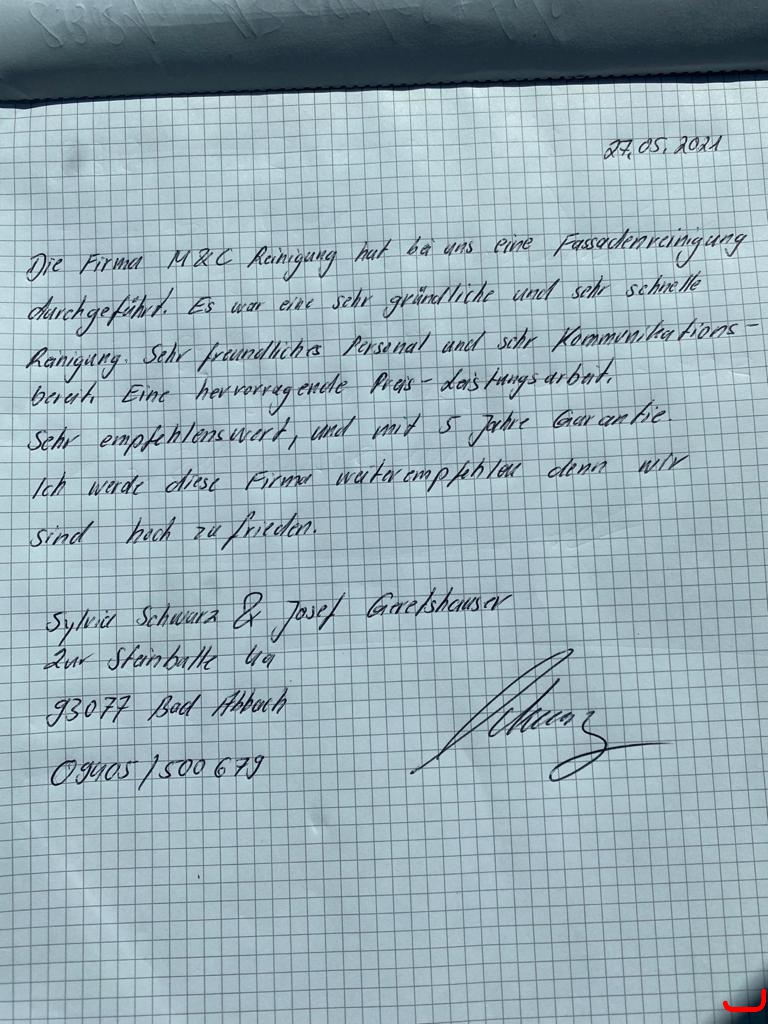 27.05.2021
Die Firma M&C Reinigung hat bei uns eine Fassadenreinigung
durchgeführt. Es war eine sehr gründliche und sehr schnelle
Reinigung. Sehr freundliches Personal und sehr Kommunikations-
bereit. Eine hervorragende Preis-Leistungsarbeit.
Sehr empfehlenswert, und mit 5 Jahre Garantie.
Ich werde diese Firma weiterempfehlen denn wir
sind hoch zufrieden.
Sylvia Schwarz & Josef Geretshauser
Zur 4a
93077 Bad Abbach
09405/500679